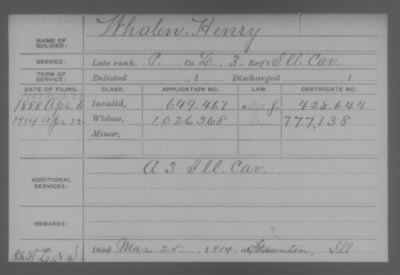 NAME OF SOLDIER: Whalen, Henry
SERVICE: Late rank, P. Co. L, 3 Reg't Ill. Cav.
TERM OF SERVICE: Enlisted , 1 Discharged , 1
DATE OF FILING. CLASS. APPLICATION NO. LAW. CERTIFICATE NO.
1888 Apr. 6 Invalid, 649.467 428.644
1914 Apr. 22 Widow, 1.026.368 777,138
Minor,
ADDITIONAL SERVICES: A 3 Ill. Cav.
REMARKS:
Died Mar. 25, 1914, at Staunton, Ill